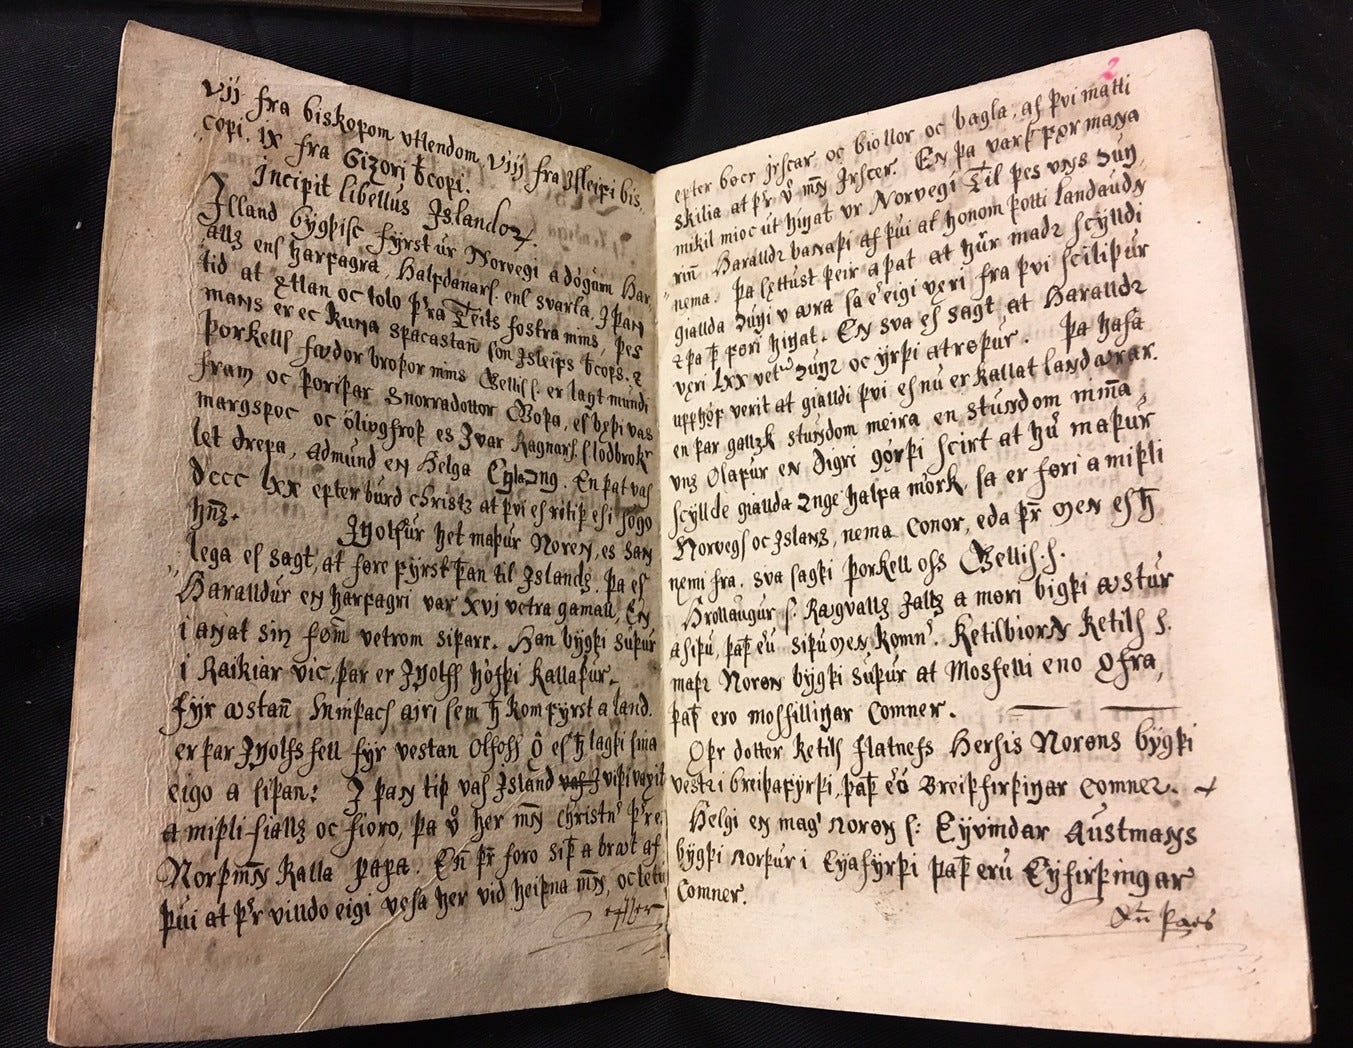 vij fra biskopom vtlendom viij fra Jsleipi bis-
copi. ix fra Gizori bcopi.
Incipit libellus Jslandoꝝ.
Jsland bygþisc fyrst ur Norvegi a dögum Har
allz ens harfagra, Halfdanars. ens svarta, J þan
tid at ætlan oc tolo þra Teits fostra mins, þes
mans er ec kuna spacastan son Jsleifs bcops. ꝛ
Þorkels födor broþor mins Gellis s. er lagt mundi
fram oc þoriþar Snorradottor Goþa, es bæþi vas
margspoc oc ólivgfroþ es Jvar Ragnars s lodbrokr
let drepa, Admund en Helga Englakng. En þat vas
dccc lxx epter burd christz at þvi es ritiþ es i sögo
hns.
Jngolfur het maþur Noren, es san
lega es sagt, at føre fyrst þan til Jslandz. þa es
Haralldur en harfagri var xvj vetra gamall, En
i anat sin fom vetrom siþarr. Han bygþi suþur
i Raikiar vic, þar er Jngolfs höfþi kallaþur
fyr austan Minþacs ayri sem h kom fyrst a land.
er þar Jngolfs fell fyr vestan Olfoss ó es h lagþi sina
eigo a siþan: J þan tiþ vas Jsland vas J viþi vaxit
a miþli fiallz oc fioro, þa v her mn christn þr e
Norþmn kalla papa. En þr foro siþ a braut af
þui at þr villdo eigi vesa her vid heiþna mn, oc letu
epter
2
epter bøcr jrscar oc biollor oc bagla, af þvi matti
skilia at þr v mn Jrscer. En þa varþ för mana
mikil mioc ut hingat ur Norvegi Til þes uns kung
rin Haralldr banaþi af þui at honom þotti landaudn
nema. þa sættust þeir a þat at hur madr scylldi
gialda kungi v aura sa e eigi veri fra þvi sciliþur
ꝛ þaþ føri hingat. En sva es sagt, at Haralldr
veri lxx vet kungr oc yrþi atrøþur. þa hafa
upphöf verit at gialldi þvi es nu er kallat landaurar.
en þar gallzk stundom meira en stundom minna
uns Olafur en digri gørþi scirt at hu maþur
scyllde gialda kunge halfa mörk sa er føri a miþli
Norvegs oc Jslanz, nema conor, eda þr men es h
nemi fra. sva sagþi Þorkell oss Gellis.s.
Hrollaugur s. Ragvallz Jallz a møri bigþi austur
a siþu, þaþ eru siþumen komn. Ketilbiorn Ketils s.
maþr Norøn bygþi suþur at Mosfelli eno øfra,
þaþ ero mosfillingar comner.
Oþr dotter Ketils flatnefs Hersis Norøns bygþi
vestr i breiþafyrþi, þaþ eo Breiþfirþingar comner.
Helgi en mag norøn s: Eyvindar Austmans
bygþi norþur i Eyafyrþi þaþ eru Eyfirþingar
Comner.
En þaes